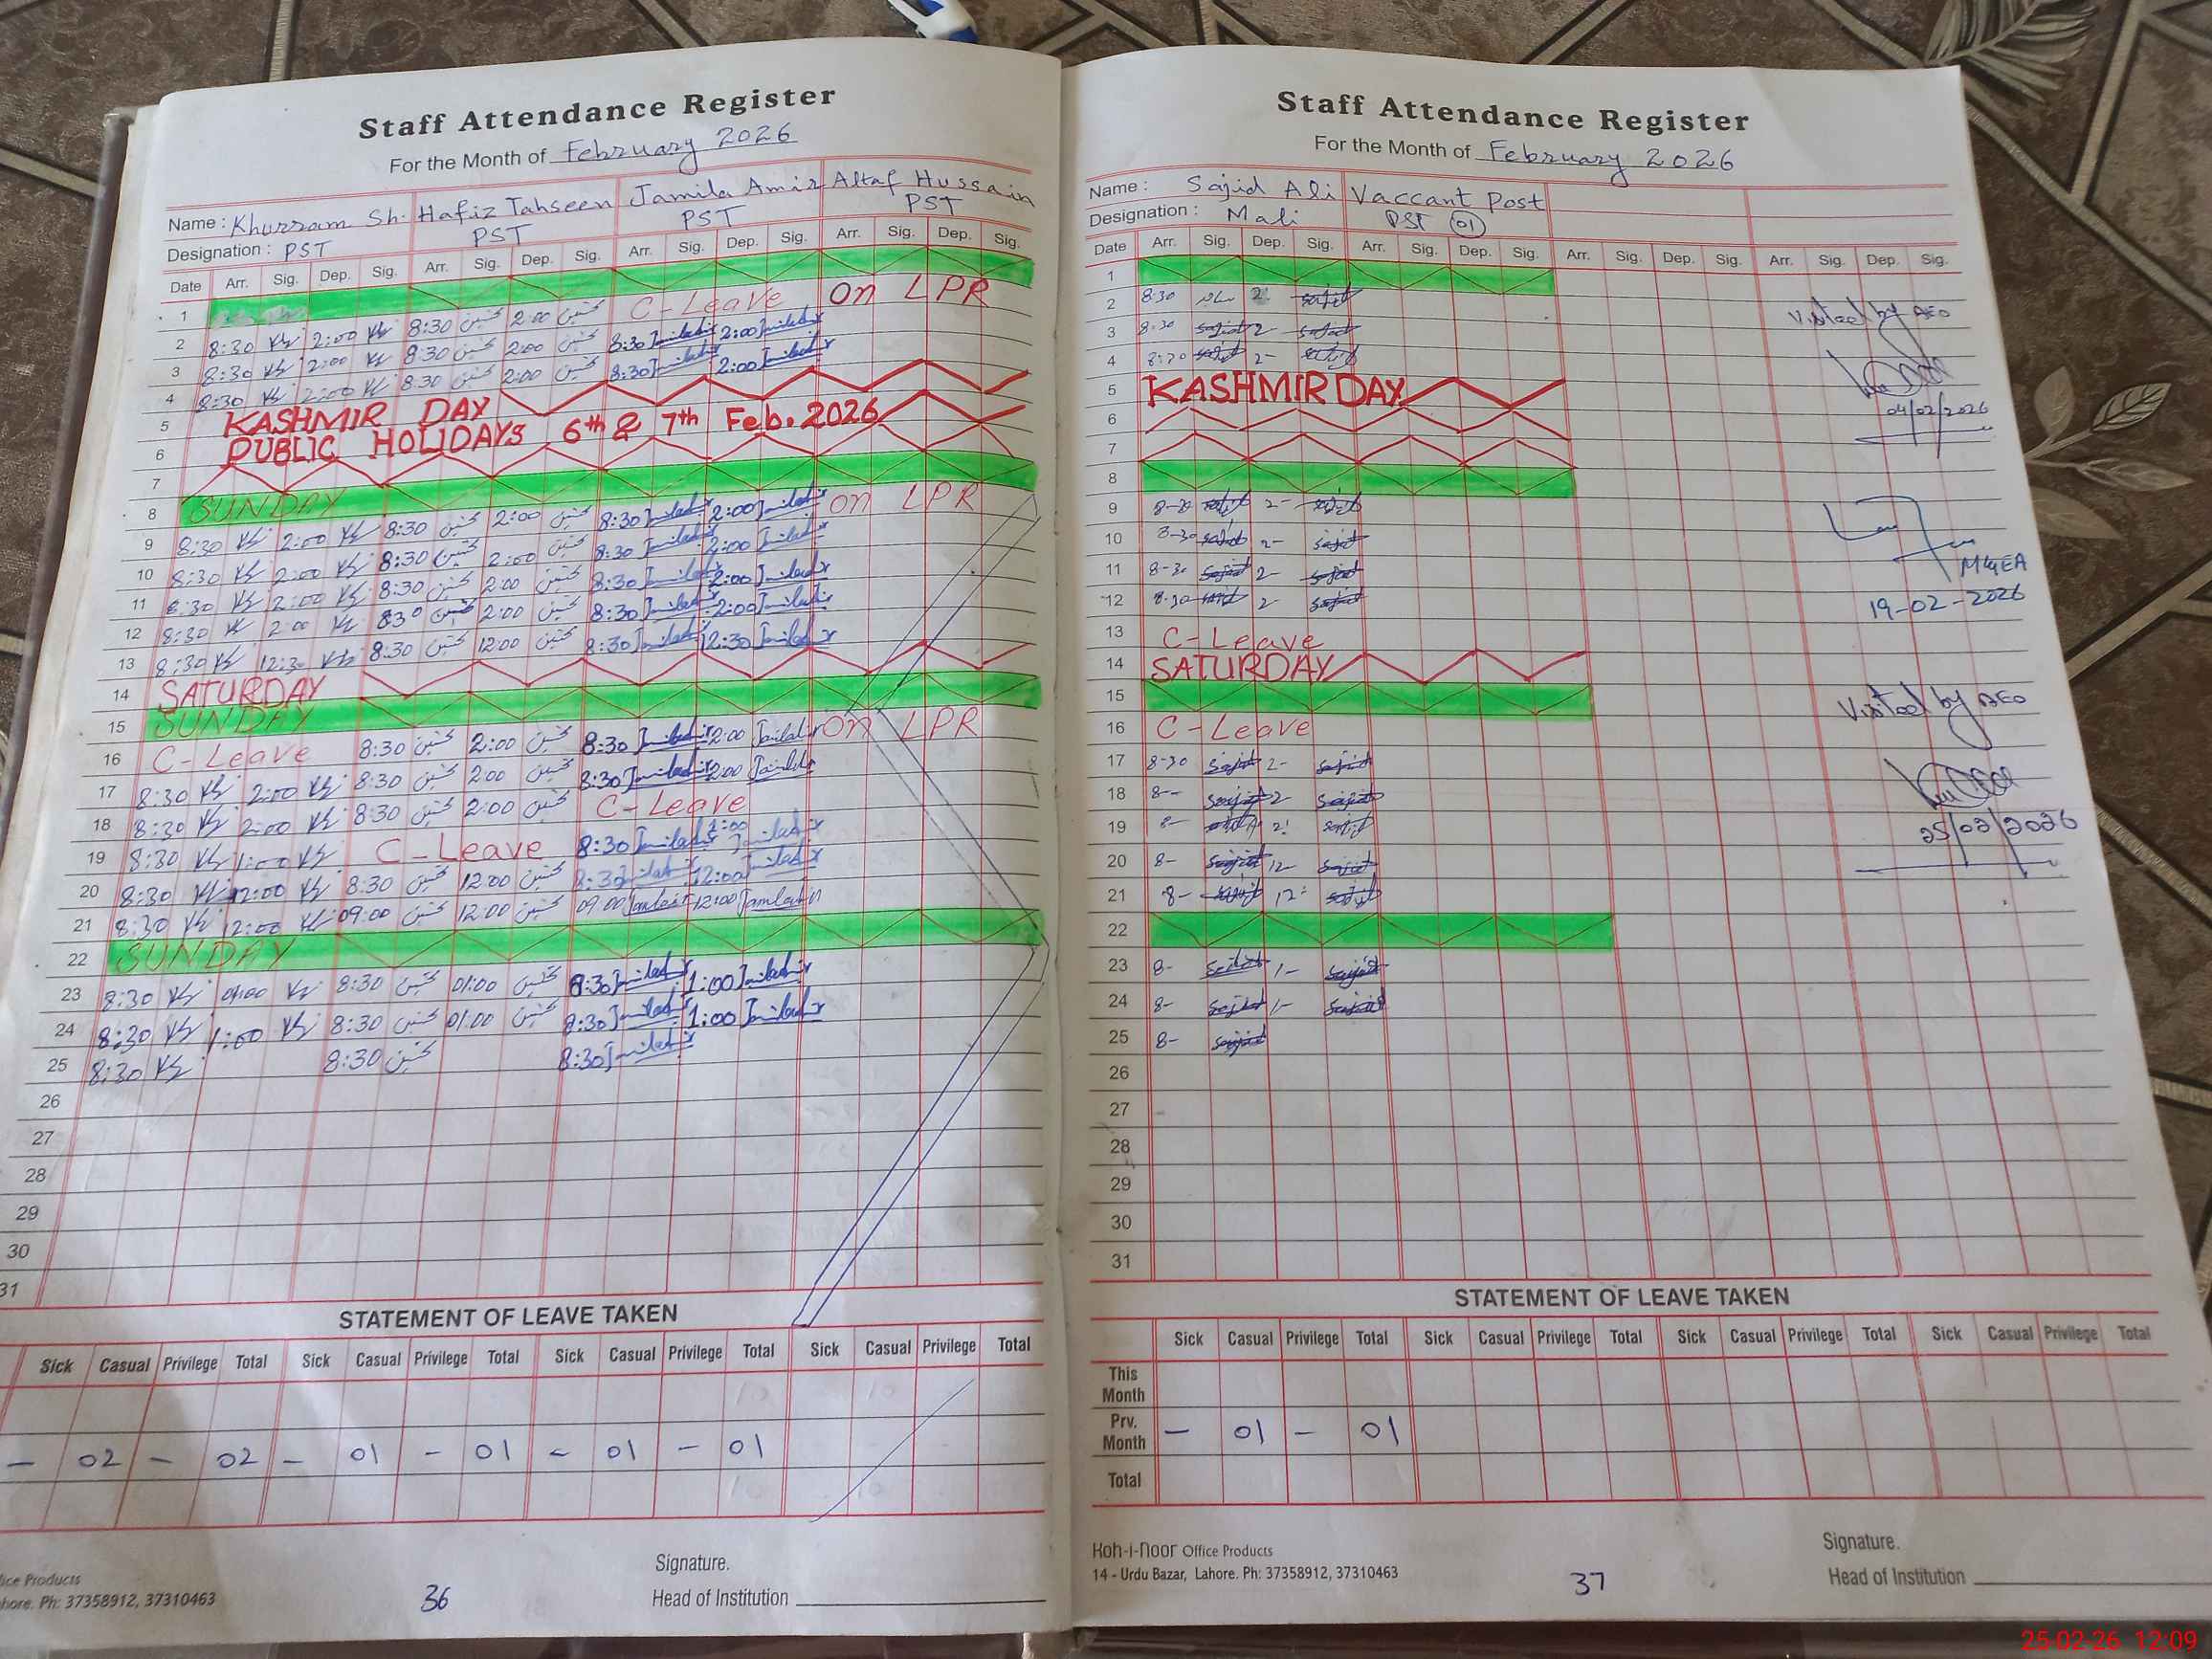 Staff Attendance Register
For the Month of February 2026
Name : Khurram Sh. Hafiz Tahseen Jamila Amir Altaf Hussain
Designation : PST PST PST PST
Date Arr. Sig. Dep. Sig. Arr. Sig. Dep. Sig. Arr. Sig. Dep. Sig. Arr. Sig. Dep. Sig.
1
2 8:30 2:00 8:30 تحسین 2:00 تحسین C-Leave On LPR
3 8:30 2:00 8:30 تحسین 2:00 تحسین 8:30 2:00
4 8:30 2:00 8:30 تحسین 2:00 تحسین 8:30 2:00
5 KASHMIR DAY
6 PUBLIC HOLIDAYS 6th & 7th Feb. 2026
7
8 SUNDAY
9 8:30 2:00 8:30 تحسین 2:00 تحسین 8:30 2:00 On LPR
10 8:30 2:00 8:30 تحسین 2:00 تحسین 8:30 2:00
11 8:30 2:00 8:30 تحسین 2:00 تحسین 8:30 2:00
12 8:30 2:00 830 تحسین 2:00 تحسین 8:30 2:00
13 8:30 12:30 8:30 تحسین 12:00 تحسین 8:30 12:30
14 SATURDAY
15 SUNDAY
16 C-Leave 8:30 تحسین 2:00 تحسین 8:30 2:00 On LPR
17 8:30 2:00 8:30 تحسین 2:00 تحسین 8:30 2:00
18 8:30 2:00 8:30 تحسین 2:00 تحسین C-Leave
19 8:30 1:00 C-Leave 8:30 1:00
20 8:30 12:00 8:30 تحسین 12:00 تحسین 8:30 12:00
21 8:30 12:00 09:00 تحسین 12:00 تحسین 09:00 12:00
22 SUNDAY
23 8:30 01:00 8:30 تحسین 01:00 تحسین 8:30 1:00
24 8:30 1:00 8:30 تحسین 01:00 تحسین 8:30 1:00
25 8:30 8:30 تحسین 8:30
26
27
28
29
30
31
STATEMENT OF LEAVE TAKEN
Sick Casual Privilege Total Sick Casual Privilege Total Sick Casual Privilege Total Sick Casual Privilege Total
- 02 - 02 - 01 - 01 - 01 - 01
Signature.
Head of Institution
ice Products
hore. Ph: 37358912, 37310463
36
Staff Attendance Register
For the Month of February 2026
Name : Sajid Ali Vaccant Post
Designation : Mali PST 01
Date Arr. Sig. Dep. Sig. Arr. Sig. Dep. Sig. Arr. Sig. Dep. Sig. Arr. Sig. Dep. Sig.
1
2 8:30 2 sajid
3 8:30 sajid 2 sajid
4 8:30 sajid 2- sajid
5 KASHMIR DAY
6
7
8
9 8-30 sajid 2- sajid
10 8-30 sajid 2- sajid
11 8-30 sajid 2- sajid
12 8-30 sajid 2- sajid
13 C-Leave
14 SATURDAY
15
16 C-Leave
17 8-30 sajid 2- sajid
18 8-- sajid 2 sajid
19 8- 2 sajid
20 8- sajid 12- sajid
21 8- sajid 12- sajid
22
23 8- sajid 1- sajid
24 8- sajid 1- sajid
25 8- sajid
26
27
28
29
30
31
Visited by AEO
04/02/2026
M&EA
19-02-2026
Visited by AEO
25/02/2026
STATEMENT OF LEAVE TAKEN
Sick Casual Privilege Total Sick Casual Privilege Total Sick Casual Privilege Total Sick Casual Privilege Total
This Month
Prv. Month - 01 - 01
Total
Koh-i-Noor Office Products
14 - Urdu Bazar, Lahore. Ph: 37358912, 37310463
37
Signature.
Head of Institution
25-02-26 12:09